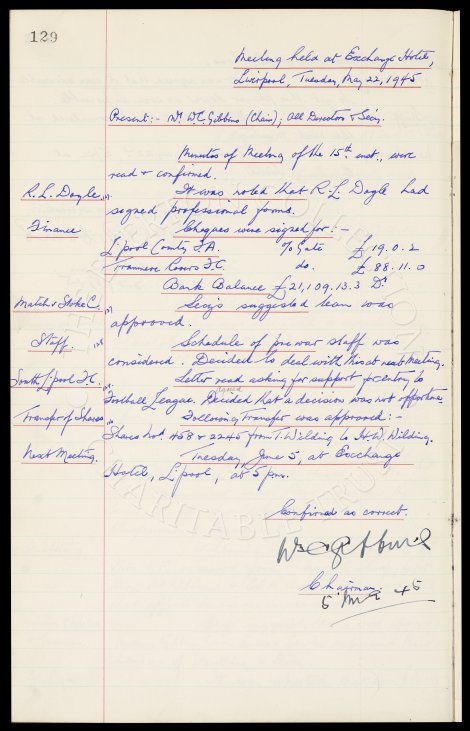 129
Meeting held at Exchange Hotel,
Liverpool, Tuesday, May 22, 1945
Present:- Mr. W.C. Gibbins (Chair); all Directors & Secy.
Minutes of Meeting of the 15th inst., were
read & confirmed.
R. L. Doyle It was noted that R. L. Doyle had
signed professional forms.
Finance Cheques were signed for:-
L'pool County F.A. % Gate £ 19. 0. 2
Tranmere Rovers F.C. do. £ 88. 11. 0
Bank Balance £21,109. 13. 3 Dr
Match v Stoke C. Secy's suggested team was
approved.
Staff. Schedule of pre war staff was
considered. Decided to deal with this at next Meeting.
South L'pool F.C. Letter read asking for support for entry to
Football League. Decided that a decision was not opportune.
Transfer of Shares Following Transfer was approved:-
Shares Nos. 458 & 2245 from T. Wilding to H. W. Wilding.
Next Meeting. Tuesday, June 5, at Exchange
Hotel, L'pool, at 5 pm.
Confirmed as correct.
Chairman.
5 45
THE EVERTON COLLECTION
CHARITABLE TRUST